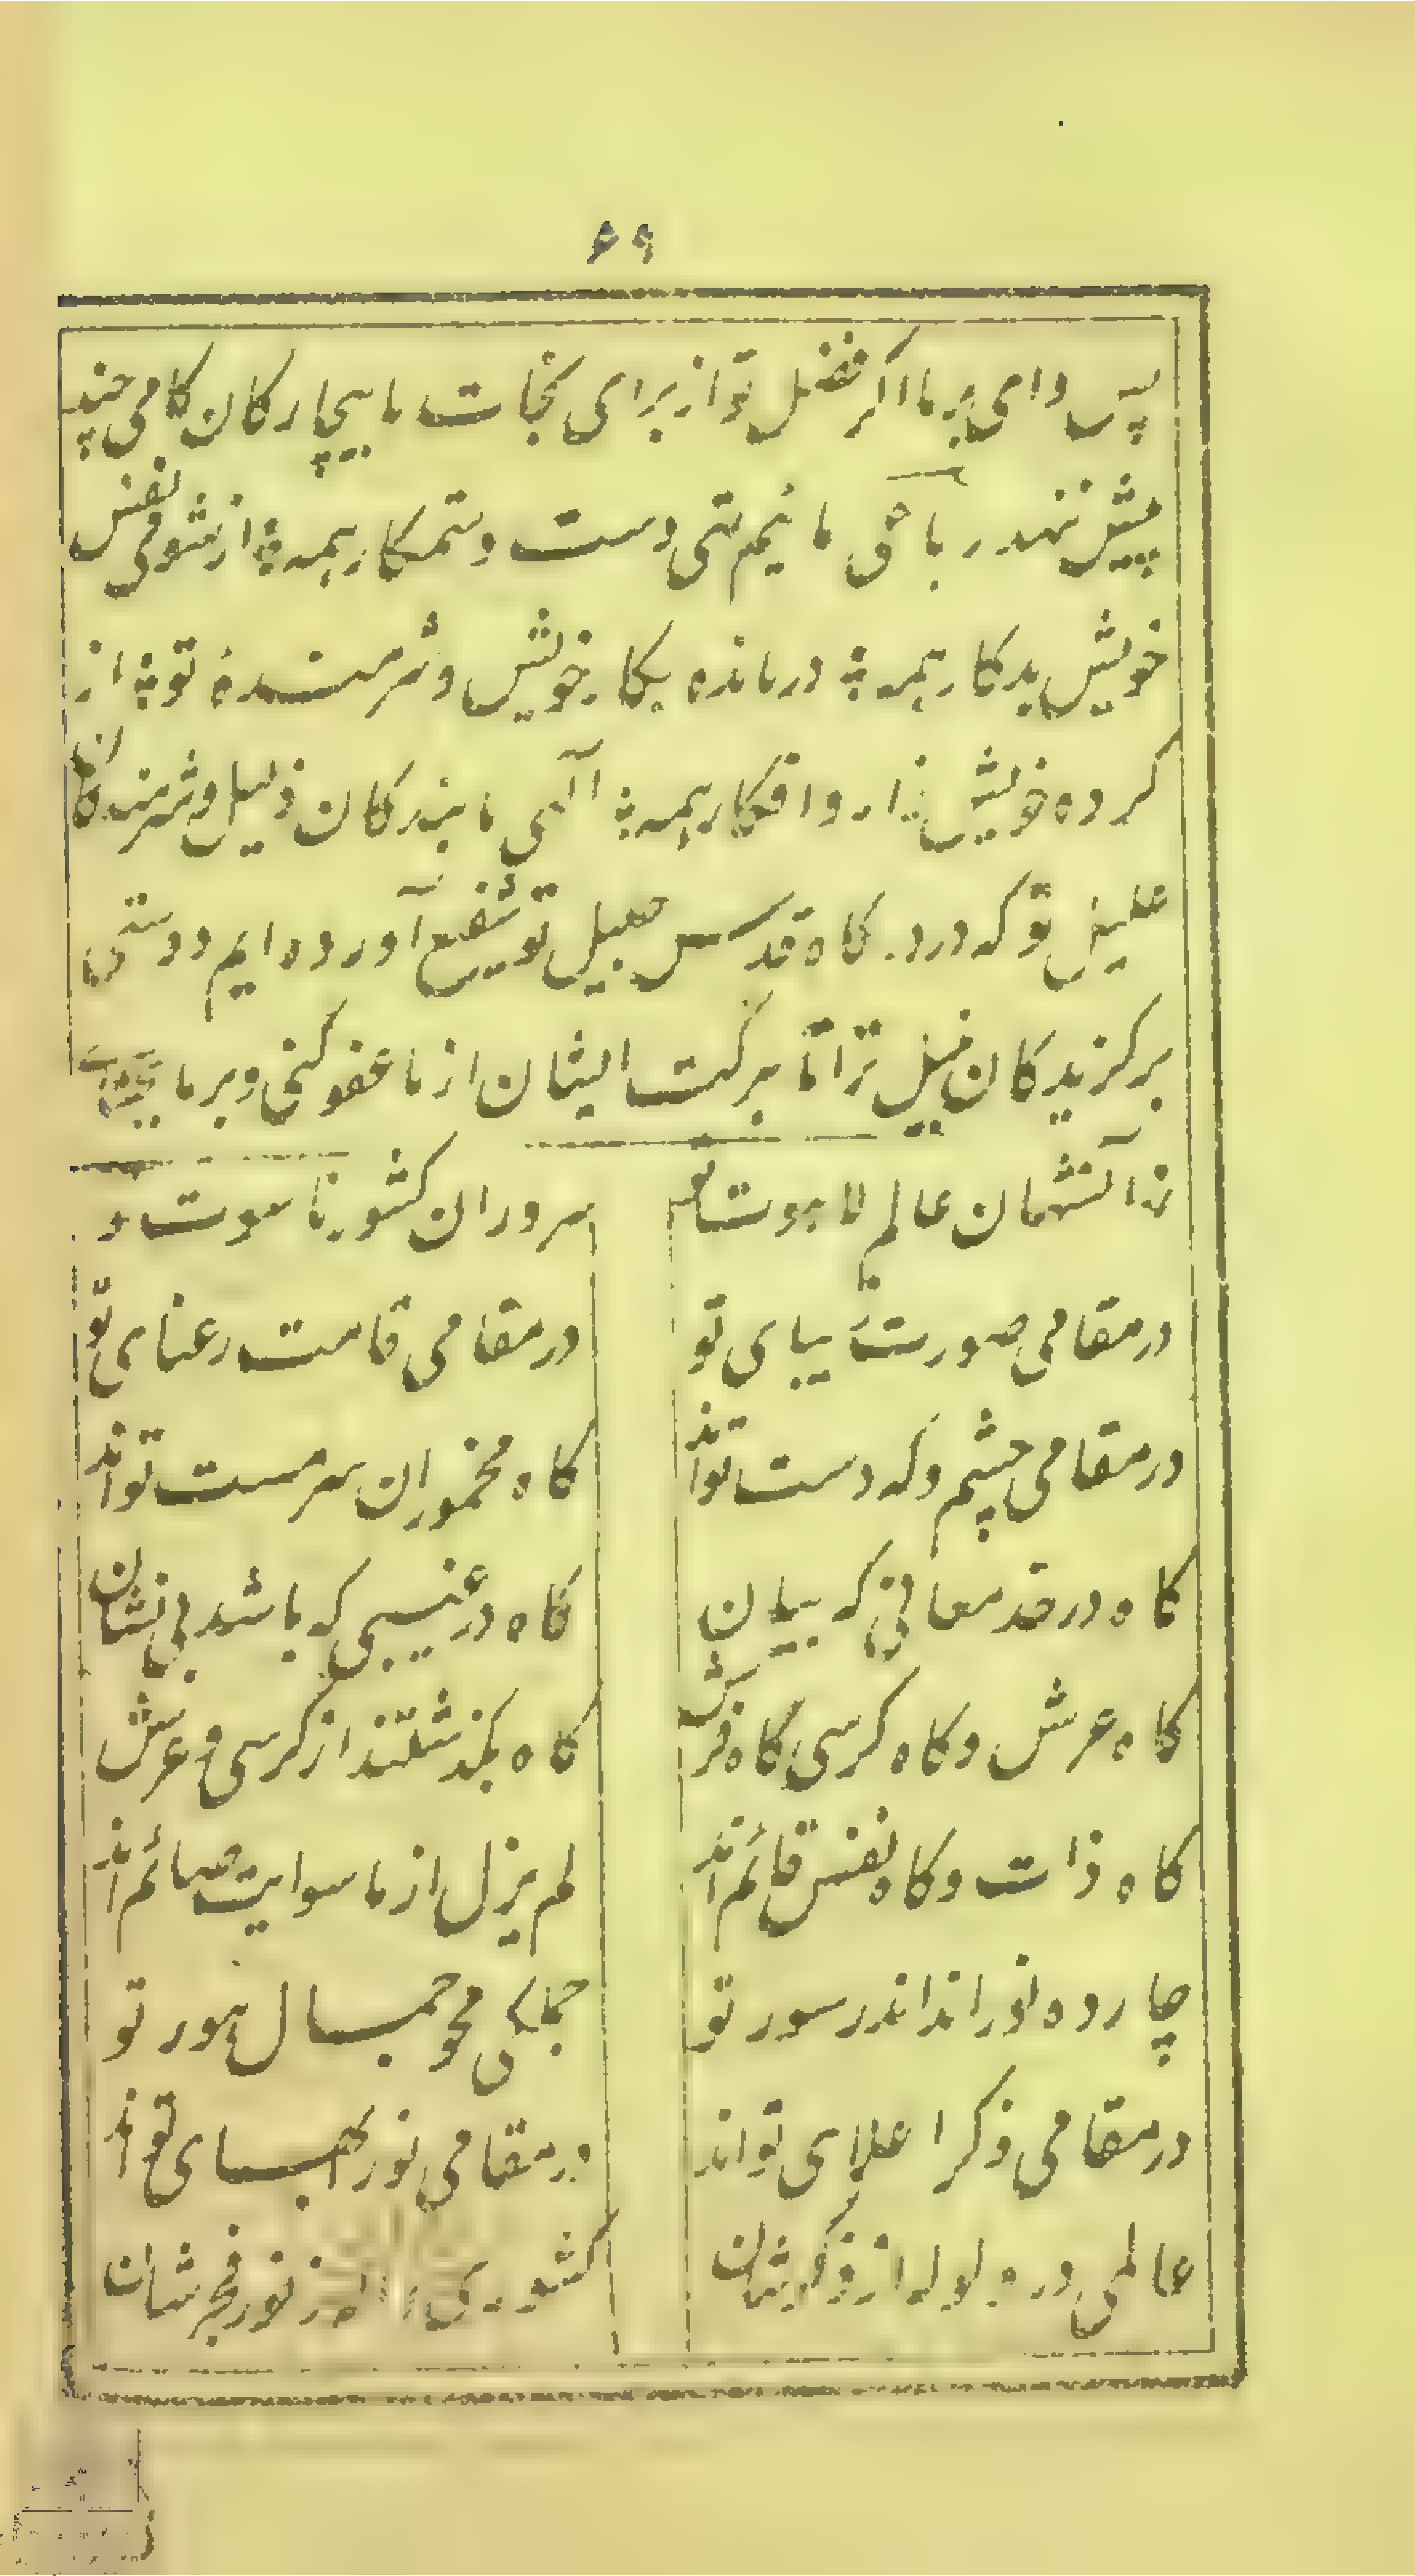 ۶۹
پس وای بر ما اکر فضل تو از برای نجات ما بیچارکان کامی چند
پیش ننهد رباعی مائیم تهی دست و ستمکار همه ؛ از شومی نفس
خویش بدکار همه ؛ درمانده بکار خویش و شرمندهٔ تو ؛ از
کرده خویش زار و افکار همه ؛ الهی ما بندکان ذلیل و شرمندکان
علیل تو که در درکاه قدس جلیل تو شفیع آورده ایم دوستی
برکزیدکان نبیل ترا تا ببرکت ایشان از ما عفو کنی و بر ما
زانشهان عالم لاهوت تو
سروران کشور ناسوت تو
در مقامی صورت زیبای تو
در مقامی قامت رعنای تو
در مقامی چشم و که دست تواند
کاه مخموران سرمست تواند
کاه در قد معانی که بیان
کاه در غیبی که باشد بی نشان
کاه عرش و کاه کرسی کاه فرش
کاه بکذشتند از کرسی و عرش
کاه ذات و کاه نفس قائم اند
لم یزل از ماسوایت صائم اند
چارده نوراند اندر سور تو
جملکی محو جمال هور تو
در مقامی ذکر اعلای تواند
در مقامی نور ابهای تواند
عالمی در ولوله از ذکرشان
کشوری نور فجرشان